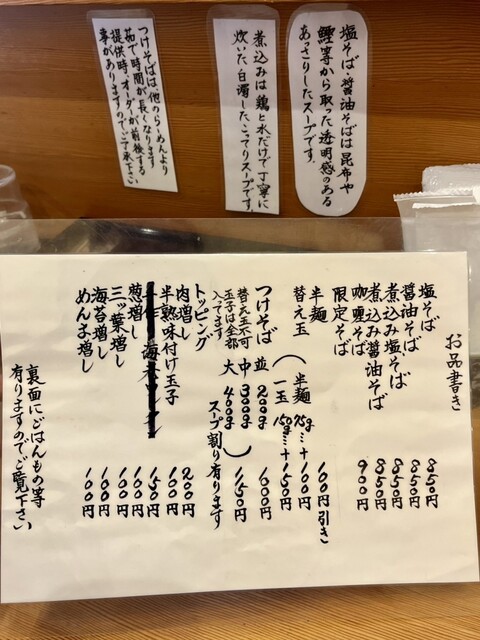 塩そば・醤油そばは昆布や
鰹等から取った透明感のある
あっさりしたスープです。
煮込みは鶏と水だけで丁寧に
炊いた白濁したこってりスープです。
つけそばは、他のらーめんより
茹で時間が長くなります
提供時、オーダーが前後する
事がありますのでご了承下さい
お品書き
塩そば 850円
醤油そば 850円
煮込み塩そば 850円
煮込み醤油そば 850円
咖喱そば 900円
限定そば
半麺 100円引き
替え玉 ( 半麺 75g…+100円
一玉 150g…+150円
つけそば 並 200g
替え玉不可 中 300g
玉子は全部 大 400g
入ってます
スープ割り有ります
トッピング
肉増し 200円
半熟味付け玉子 100円
150円
葱増し 100円
三ッ葉増し 100円
海苔増し 100円
めんま増し 100円
裏面にごはんもの等
有りますのでご覧下さい